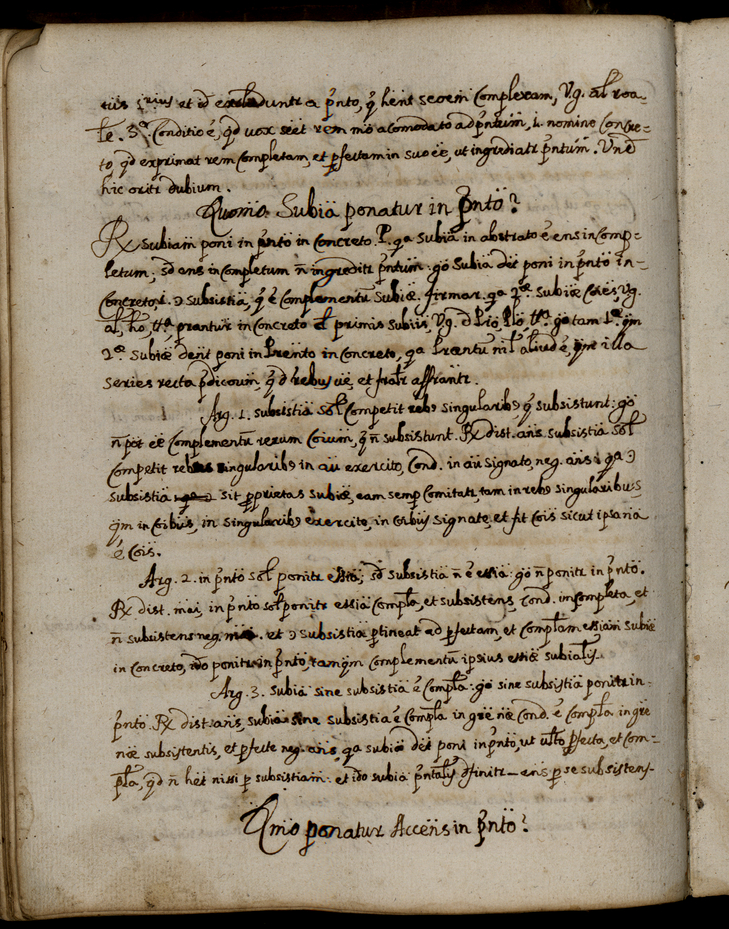 et id excluduntr a pnto, q hent seoem Complexam, V.g. al roa-
le. 3.ª Conditio é, qd vox seet rem mõ acomodato ad pntum, i. nomine Concre-
to, qd exprimat rem completam, et pfectam in suo eë, ut ingrediatr pntum. Vnd
hic oritr dubium.
Quomo Subia ponatur in pnto?
Rx Subiam poni in pnto in Concreto. P. qa Subia in abstrato é ens incomp=
letum; sd ens incompletum ñ ingreditr pntum: go Subia det poni in pnto in-
Concreto, i. Ↄ subsistiã, q é Complementũ Subiæ. firmar. qa 2æ Subiæ Coẽs, Vg.
al, ho, ttª. prantur in Concreto et primis Subiis, Vg. d Pto, Pto, ttª. go tam 1.æ qm
2.æ Subiæ dent poni in Prento in Concreto, qa Prcentũ nil aliud é, qm illa
series recta pdicoum, q d rebus uë, et fratr affrantr.
Arg. 1. subsistiã sol Competit rebƆ singularibƆ q subsistunt: go
ñ pot eë Complementũ rerum Coium, q ñ subsistunt. Rx dist. ans subsistia sol
Competit rebus singularibƆ in au exercito, Cond. in au signato, neg. ans: qa Ↄ
subsistia sit pprietas subiæ, eam semp Comitatr, tam in rebƆ singularibus,
qm in Coibus, in singularibƆ exercite, in Coibus signate, et fit Cois sicut ipsa na
é Cois.
Arg. 2. in pnto sol ponitr essia; sd subsistia ñ é essia: go ñ ponitr in pnto.
Rx dist. mai, in pnto sol ponitr essiã Compla, et subsistens, Cond. incompleta, et
ñ subsistens neg. mai. et Ↄ subsistia ptineat ad pfectam, et Complam essiam subiæ
in Concreto, ido ponitr in pnto, tamqm Complementũ ipsius essiæ subialis.
Arg. 3. Subia sine subsistia é Compla: go sine subsistiã ponitr in-
pnto. Rx dist. ans, subia sine subsistia é Compla in gre næ Cond. é Compla in gre
næ subsistentis, et pfecte neg. ans, qa subia det poni in pnto, ut ulto pfecta, et Com-
pla, qd ñ het nissi p subsistiam: et ido subia pntalis dfinitr ens p se subsistens.
Qmo ponatur Accens in pnto?